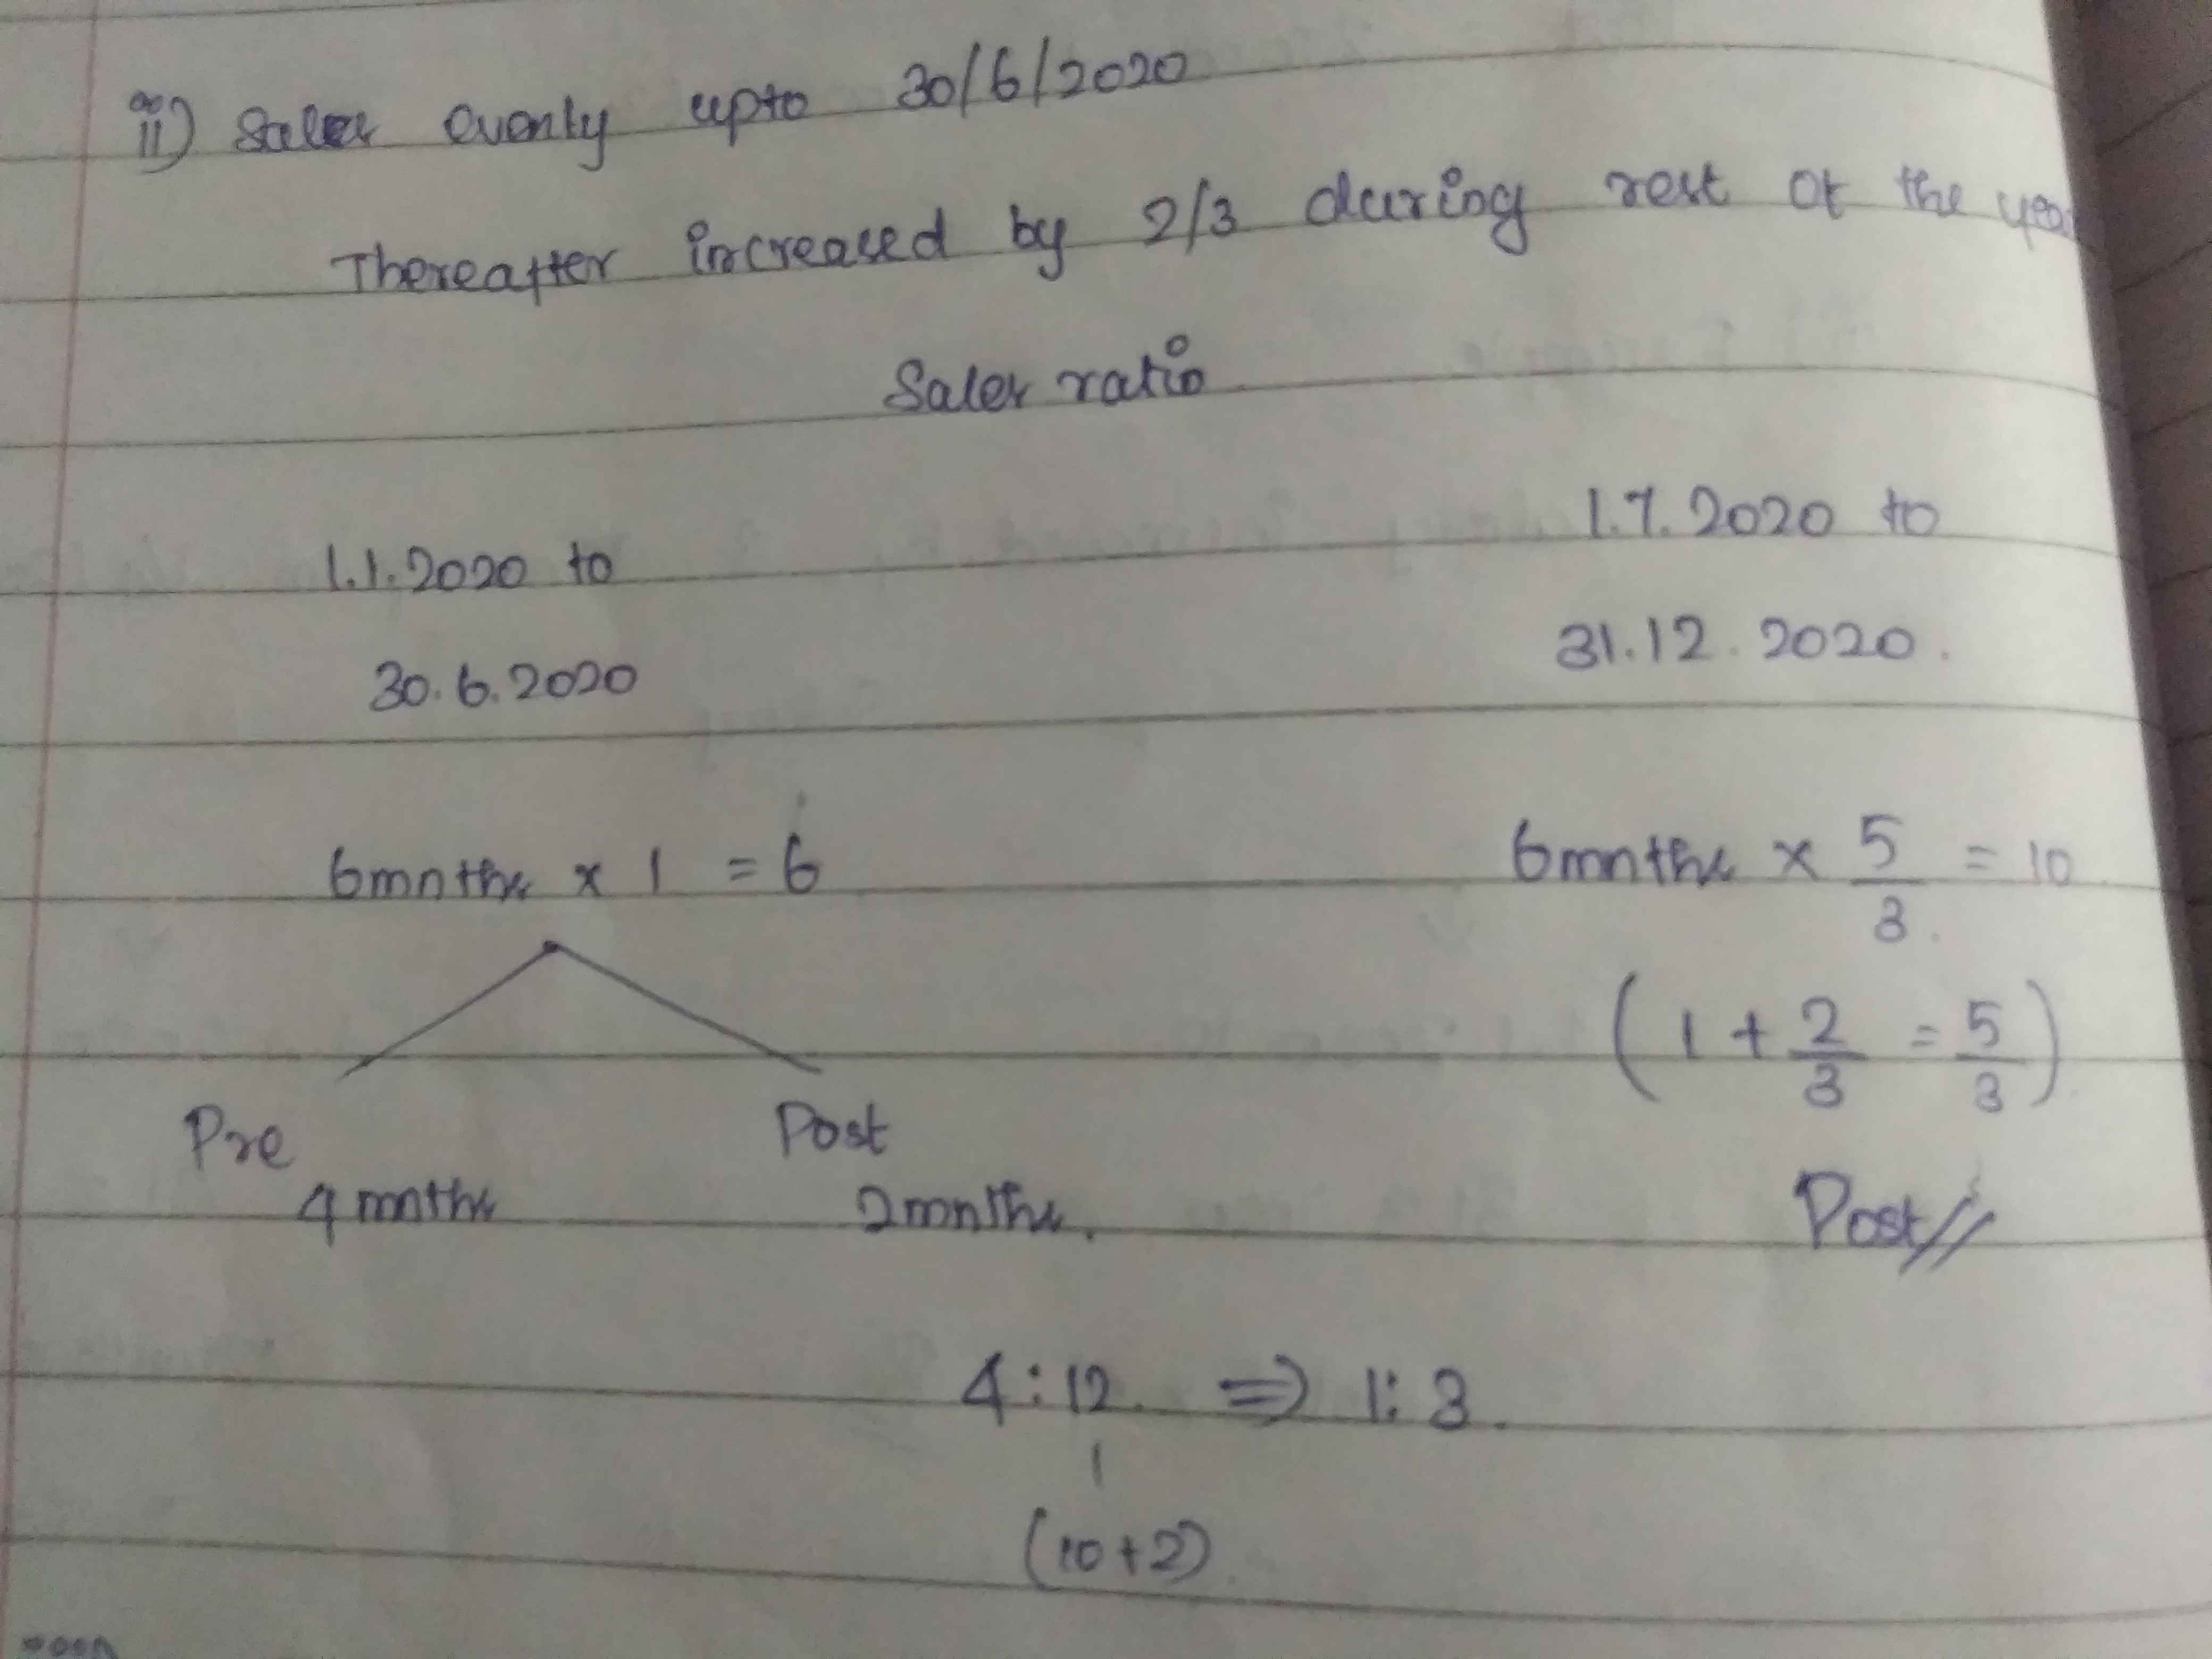 ii) Sales evenly upto 30/6/2020
Thereafter increased by 2/3 during rest of the year
Sales ratio
1.1.2020 to
30.6.2020
1.7.2020 to
31.12.2020.
6mnths x 1 = 6
6mnths x 5/3 = 10
(1 + 2/3 = 5/3)
Pre
4 mnths
Post
2mnths.
Post//
4:12 ⇒ 1:3.
(10+2)